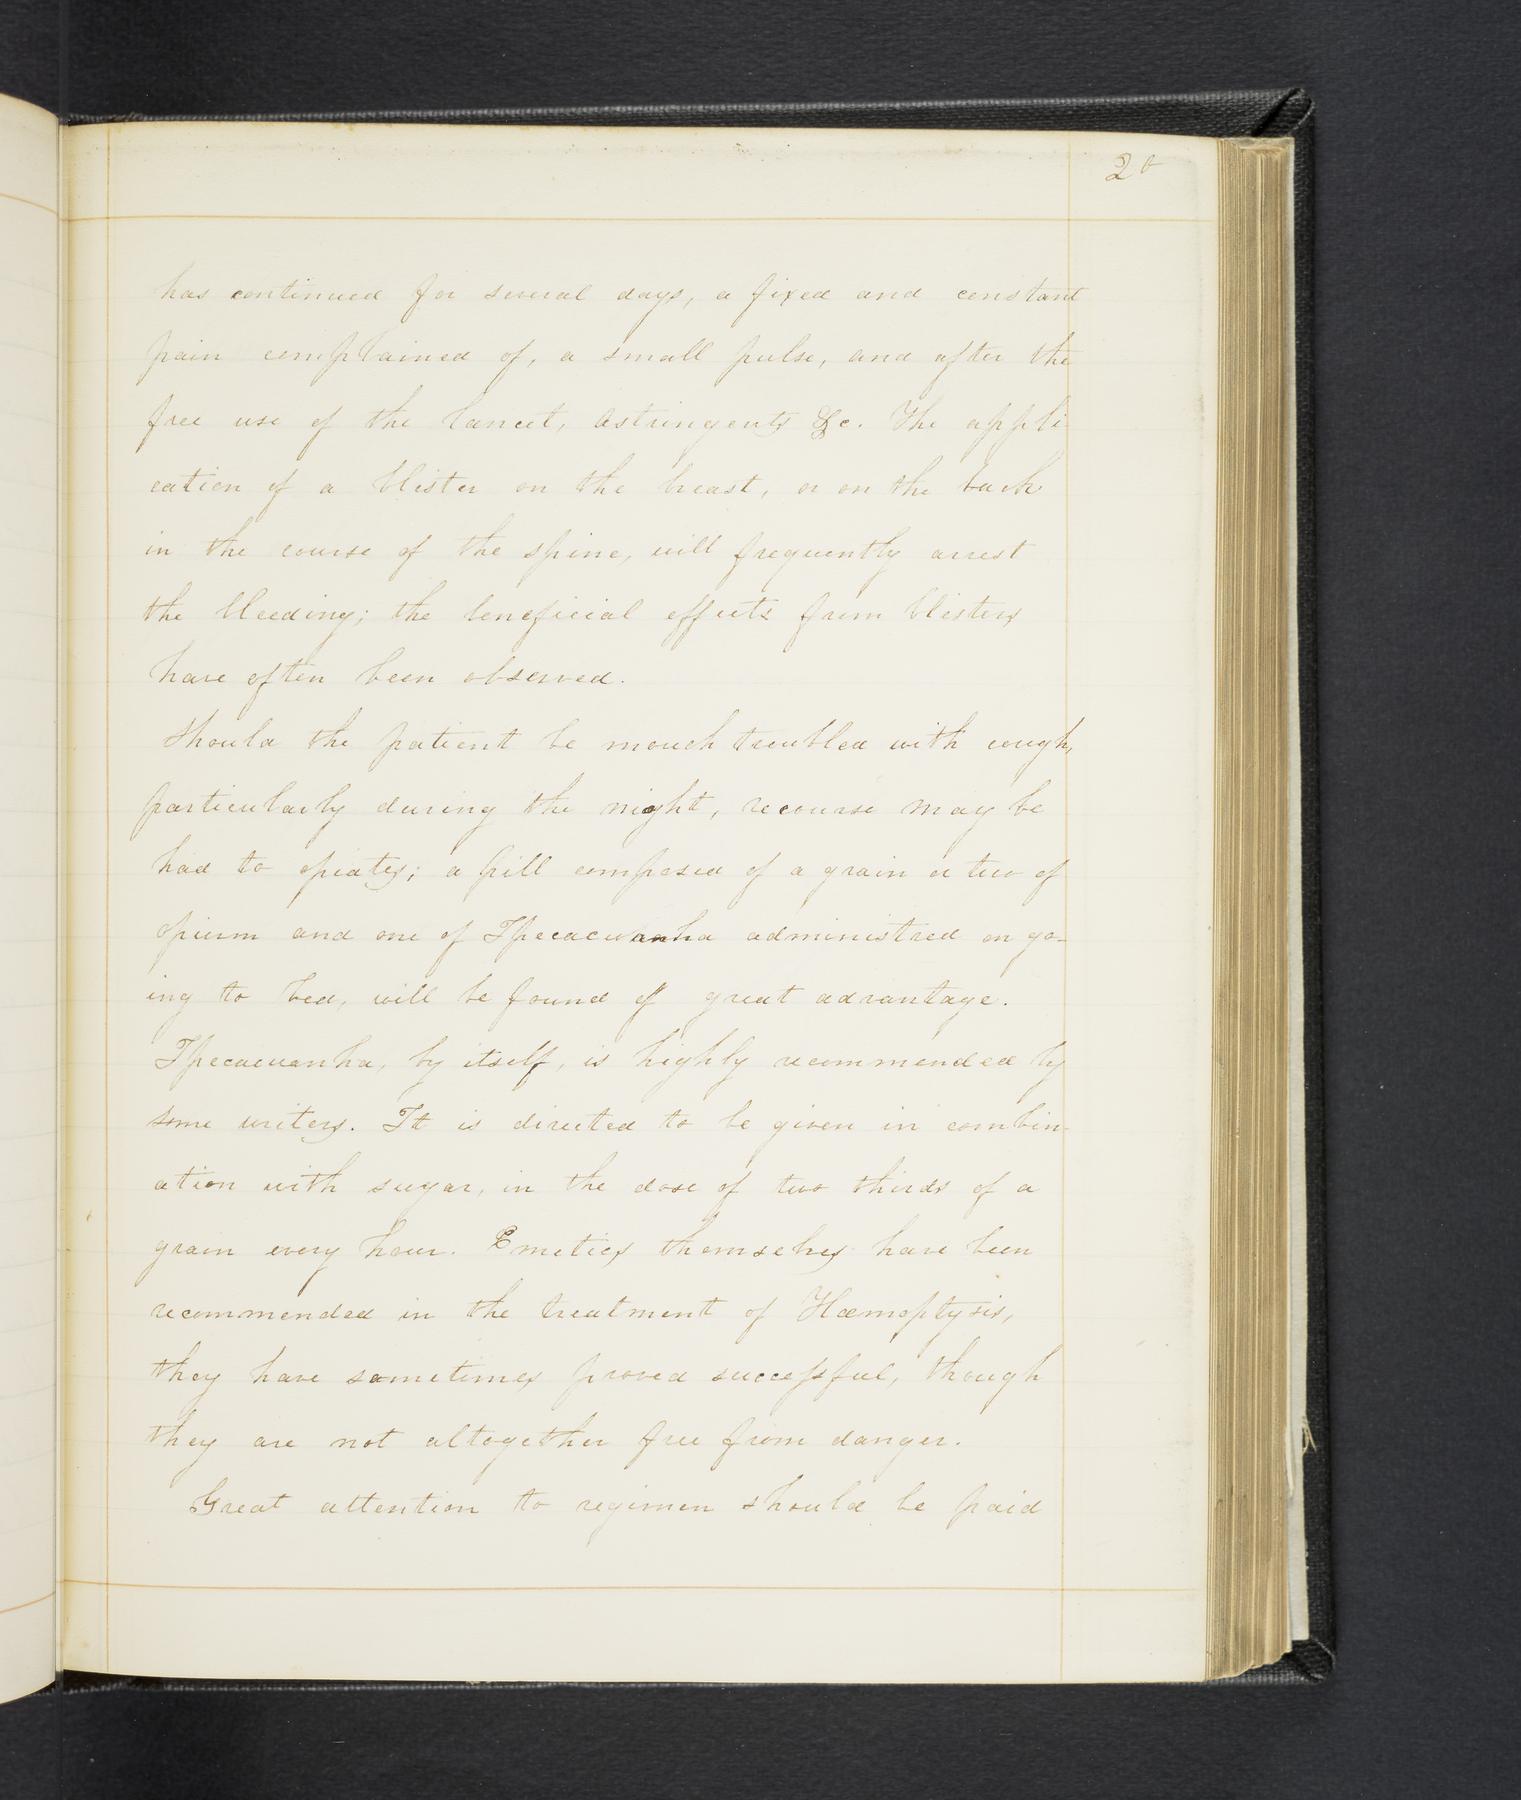 20
has continued for several days, a fixed and constant
pain complained of, a small pulse, and after the
free use of the lancet, astringents &c. The appli
cation of a blister on the breast, or on the back
in the course of the spine, will frequently arrest
the bleeding; the beneficial effects from blisters
have often been observed.
Should the patient be mouch troubled with cough,
particularly during the night, recourse may be
had to opiates; a pill composed of a grain or two of
opium and one of Ipecacuanha administred on go-
ing to bed, will be found of great advantage.
Ipecacuanha, by itself, is highly recommended by
some writers. It is directed to be given in combin-
ation with sugar, in the dose of two thirds of a
grain every hour. Emetics themselves have been
recommended in the treatment of Hæmoptysis,
they have sometimes proved successful, though
they are not altogether free from danger.
Great attention to regimen should be paid